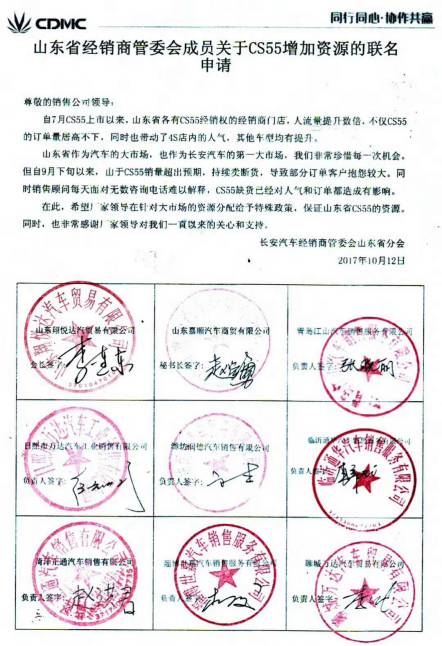 CDMC
同行同心·协作共赢
山东省经销商管委会成员关于CS55增加资源的联名
申请
尊敬的销售公司领导：
自7月CS55上市以来，山东省各有CS55经销权的经销商门店，人流量提升数倍，不仅CS55
的订单量居高不下，同时也带动了4S店内的人气，其他车型均有提升。
山东省作为汽车的大市场，也作为长安汽车的第一大市场，我们非常珍惜每一次机会。
但自9月下旬以来，由于CS55销量超出预期，持续卖断货，导致部分订单客户抱怨较大。同
时销售顾问每天面对无数咨询电话难以解释，CS55缺货已经对人气和订单都造成有影响。
在此，希望厂家领导在针对大市场的资源分配给予特殊政策，保证山东省CS55的资源。
同时，也非常感谢厂家领导对我们一直以来的关心和支持。
长安汽车经销商管委会山东省分会
2017年10月12日
山东翔悦达汽贸易有限公司
会长签字：
山东嘉顺汽车商贸有限公司
秘书长签字：
青岛江山汽车销售服务有限公司
负责人签字：
日照市万达汽车工业销售有限公司
负责人签字：
潍坊润德汽车销售有限公司
负责人签字：
负责人签字：
临沂通华汽车销售服务有限公司
菏泽正通汽车销售有限公司
负责人签字：
汽车销售服务有限公司
负责人签字：
聊城万达汽车贸易有限公司
负责人签字：